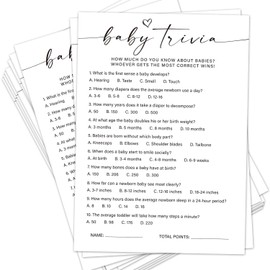 baby trivia
HOW MUCH DO YOU KNOW ABOUT BABIES?
WHOEVER GETS THE MOST CORRECT WINS!
1. What is the first sense a baby develops?
A. Hearing B. Taste C. Smell D. Touch
2. How many diapers does the average newborn use a day?
A. 3-6 B. 5-8 C. 8-12 D. 12-16
3. How many years does it take a diaper to decompose?
A. 50 B. 150 C. 300 D. 500
4. At what age the baby doubles his or her birth weight?
A. 3 months B. 5 months C. 8 months D. 10 months
5. Babies are born without which body part?
A. Kneecaps B. Elbows C. Shoulder blades D. Tailbone
6. When does a baby start to smile socially?
A. At birth B. 3-4 months C. 2-4 weeks D. 6-9 weeks
7. How many bones does a baby have at birth?
A. 150 B. 206 C. 300 D. 322
8. How far can a newborn baby see most clearly?
A. 3-7 inches B. 8-12 inches C. 12-16 inches D. 18-24 inches
9. How many hours does the average newborn sleep in a 24-hour period?
A. 8 B. 10 C. 14 D. 16
10. The average toddler will take how many steps a minute?
A. 50 B. 98 C. 176 D. 220
NAME: TOTAL POINTS: